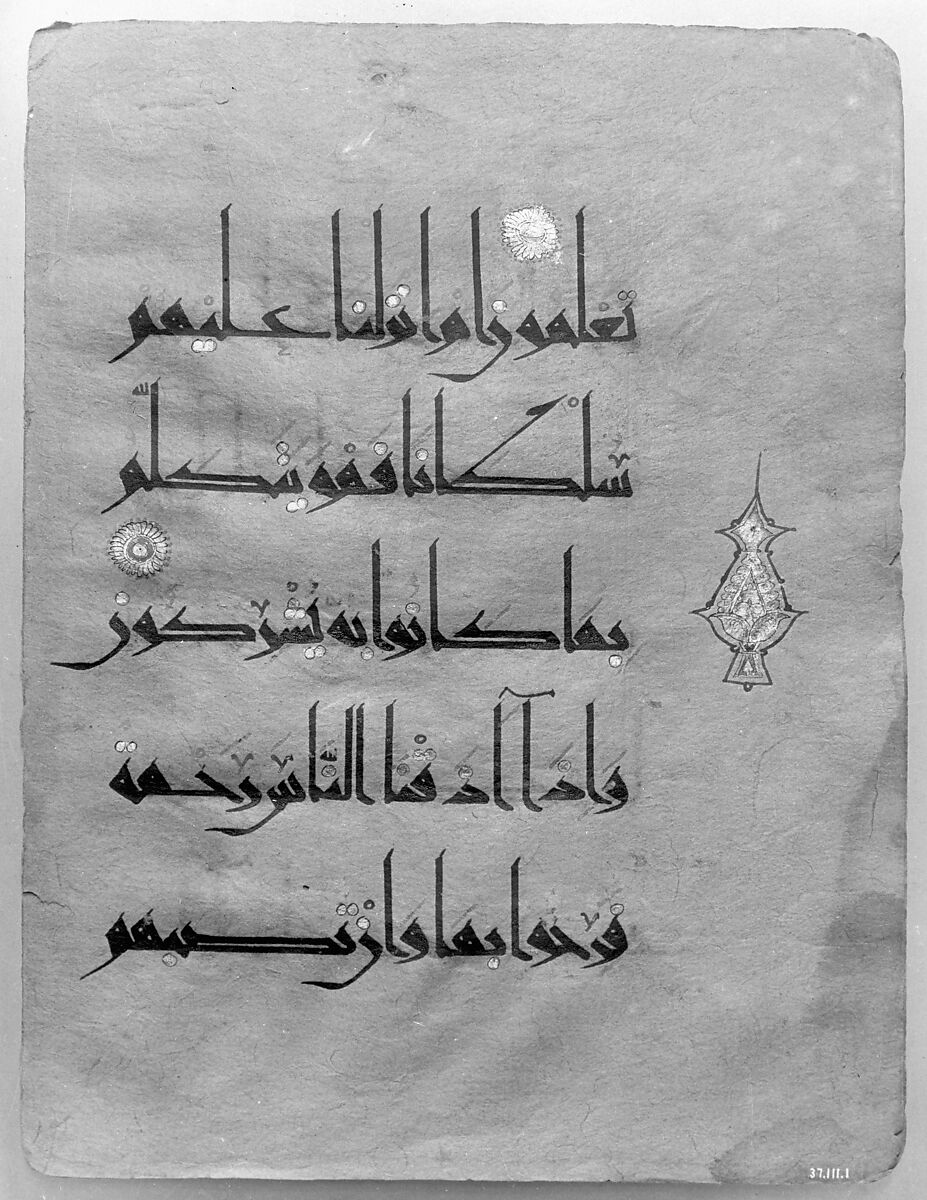 تعلمون ام انزلنا عليهم
سلطانا فهو يتكلم
بما كانوا به يشركون
واذآ اذقنا الناس رحمة
فرحوا بها وان تصبهم
37.111.1